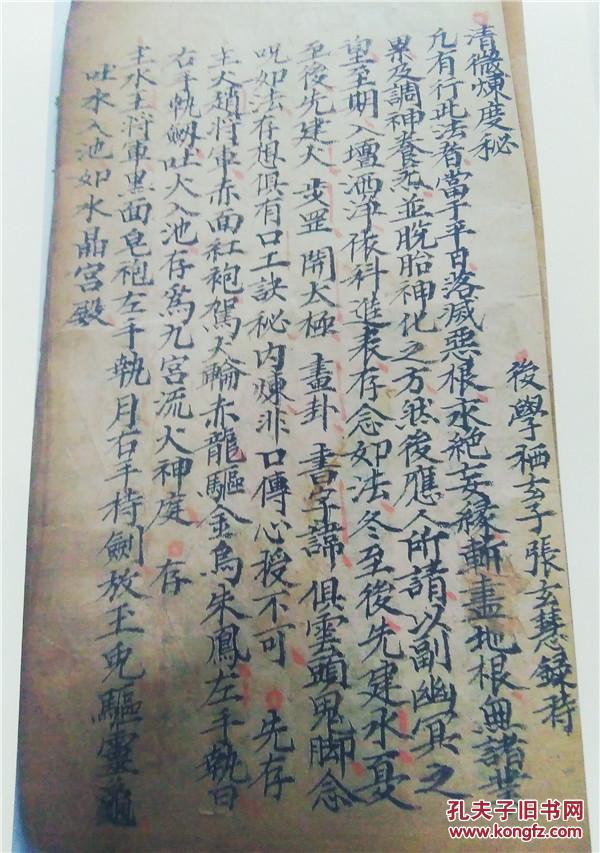 清微煉度秘
後學栖玄子張玄慧録持
凢有行此法者當于平日落滅惡根永絶妄縁斬盡地根無諸業
累及調神養炁並脱胎神化之方然後應人所請以副幽冥之
望至明入壇洒净依科進表存念如法冬至後先建水夏
至後先建火 步罡 開太極 畫卦 書字諱 俱雲頭鬼脚念
呪如法存想俱有口工訣秘内煉非口傳心授不可 先存
主火趙將軍赤面紅袍駕火輪赤龍驅金烏朱鳳左手執日
右手執劔吐火入池存爲九宫流火神庭 存
主水王將軍黑面皂袍左手執月右手持劍放玉兎驅靈龜
吐水入池如水晶宫殿
孔夫子旧书网
www.kongfz.com